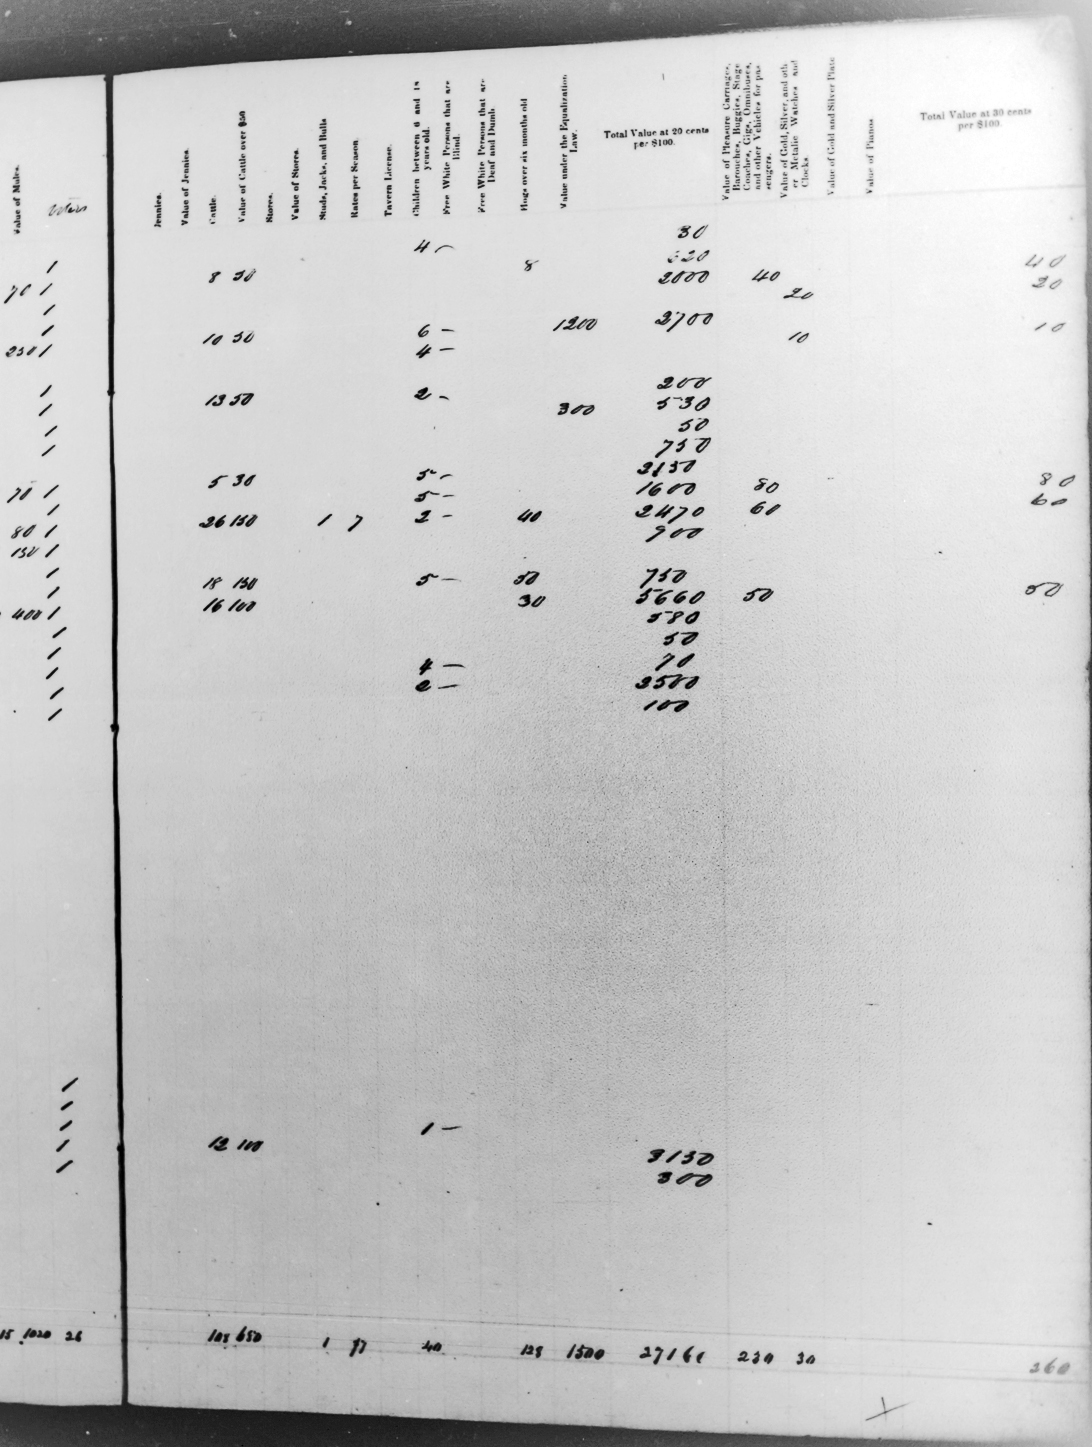 Value of Males.
Voters
Jennies.
Value of Jennies.
Cattle.
Value of Cattle over $50
Stores.
Value of Stores.
Studs, Jacks, and Bulls
Rates per Season.
Tavern License.
Children between 6 and 18 years old.
Free White Persons that are Blind.
Free White Persons that are Deaf and Dumb.
Hogs over six months old
Value under the Equalization Law.
Total Value at 20 cents per $100.
Value of Pleasure Carriages, Barouches, Buggies, Stage Coaches, Gigs, Omnibuses, and other Vehicles for passengers.
Value of Gold, Silver, and other Metalic Watches and Clocks.
Value of Gold and Silver Plate
Value of Pianos.
Total Value at 30 cents per $100.
30
4 —
8 40
1 8 50 2000 40
70 1 20 20
1 6 — 1200 2700
1 10 50 10 10
250 1 4 —
200
1 13 50 2 -
1 300 530
1 50
1 750
2150
5 30 5 - 80
70 1 5 — 1600 80 60
1 26 150 1 7 2 - 40 2470 60
80 1 900
150 1
1 18 150 5 — 50 750
1 16 100 30 5660 50 50
400 1 580
1 50
1 4 — 70
1 2 — 3500
1 100
1
1
1
1
1 1 —
1 12 100 3150
1 300
15 1020 26 108 650 1 7 40 128 1500 230 30 260